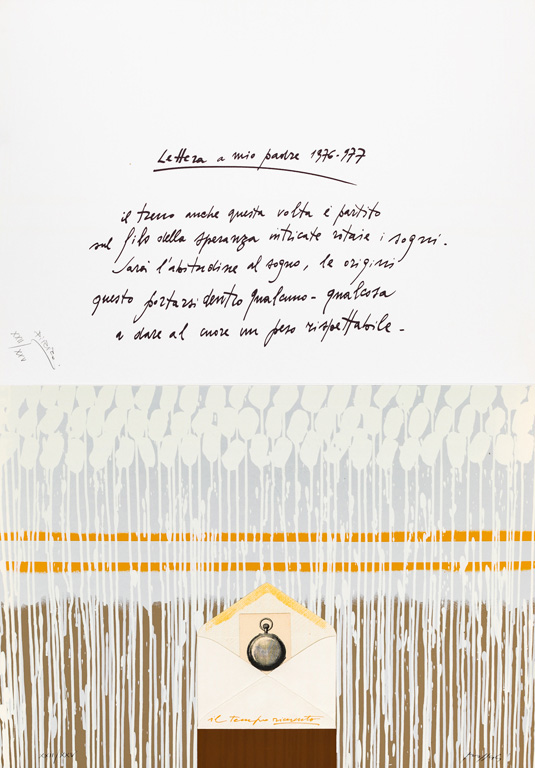 Lettera a mio padre 1976-977
il treno anche questa volta è partito
sul filo della speranza intricate rotaie i sogni.
Sarà l'abitudine al sogno, le origini
questo portarsi dentro qualcuno - qualcosa
a dare al cuore un peso rispettabile -
XXII/XXV
il tempo
XXII/XXV